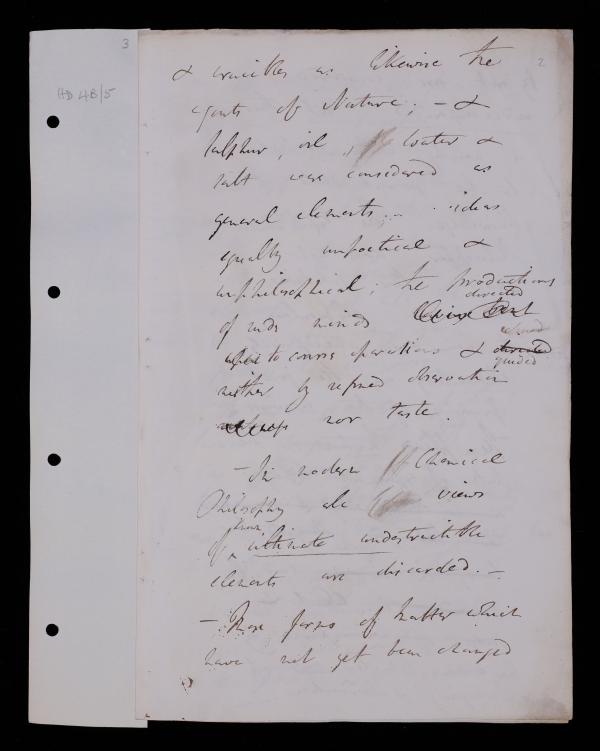 3
HD 4B/5
2
& crucibles as likewise the
agents of Nature; – &
sulphur, oil, water &
salt were considered as
general elements; ideas
equally unpoetical &
unphilosophical; the productions
directed
of rude minds
to coarse operations & directed
guided
neither by refined observation
nor taste.
– In modern Chemical
Philosophy all views
of ultimate undestructible
elements are discarded. –
– Those forms of Matter which
have not yet been changed